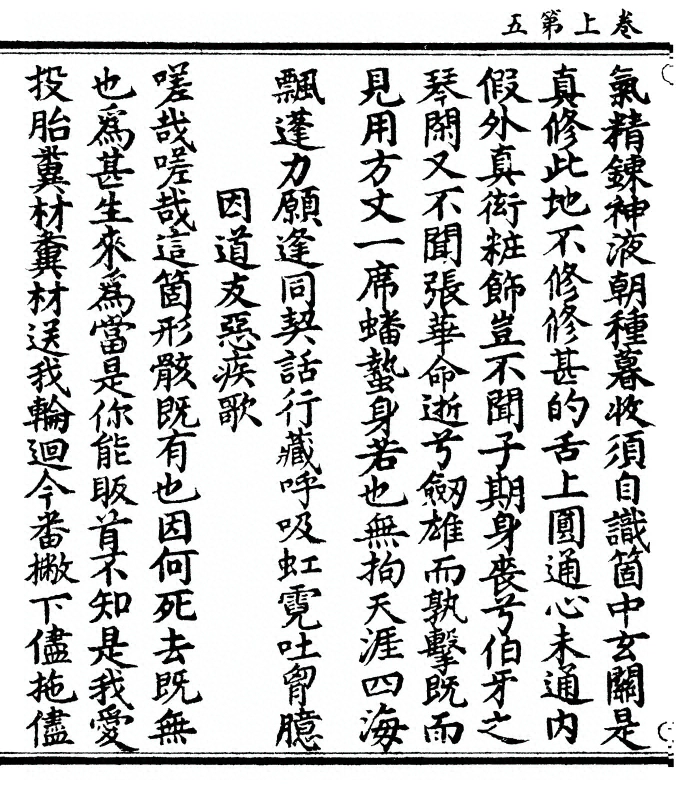 卷上第五
氣精鍊神液朝種暮收須自識箇中玄關是
真修此地不修修甚的舌上圓通心未通內
假外真衒粧飾豈不聞子期身喪兮伯牙之
琴閑又不聞張華命逝兮劔雄而孰擊既而
見用方丈一席蟠蟄身若也無拘天涯四海
飄蓬力願逢同契話行藏呼吸虹霓吐胷臆
因道友惡疾歌
嗟哉嗟哉這箇形骸既有也因何死去既無
也爲甚生來爲當是你能眅首不知是我愛
投胎糞材糞材送我輪迴今番撇下儘拖儘